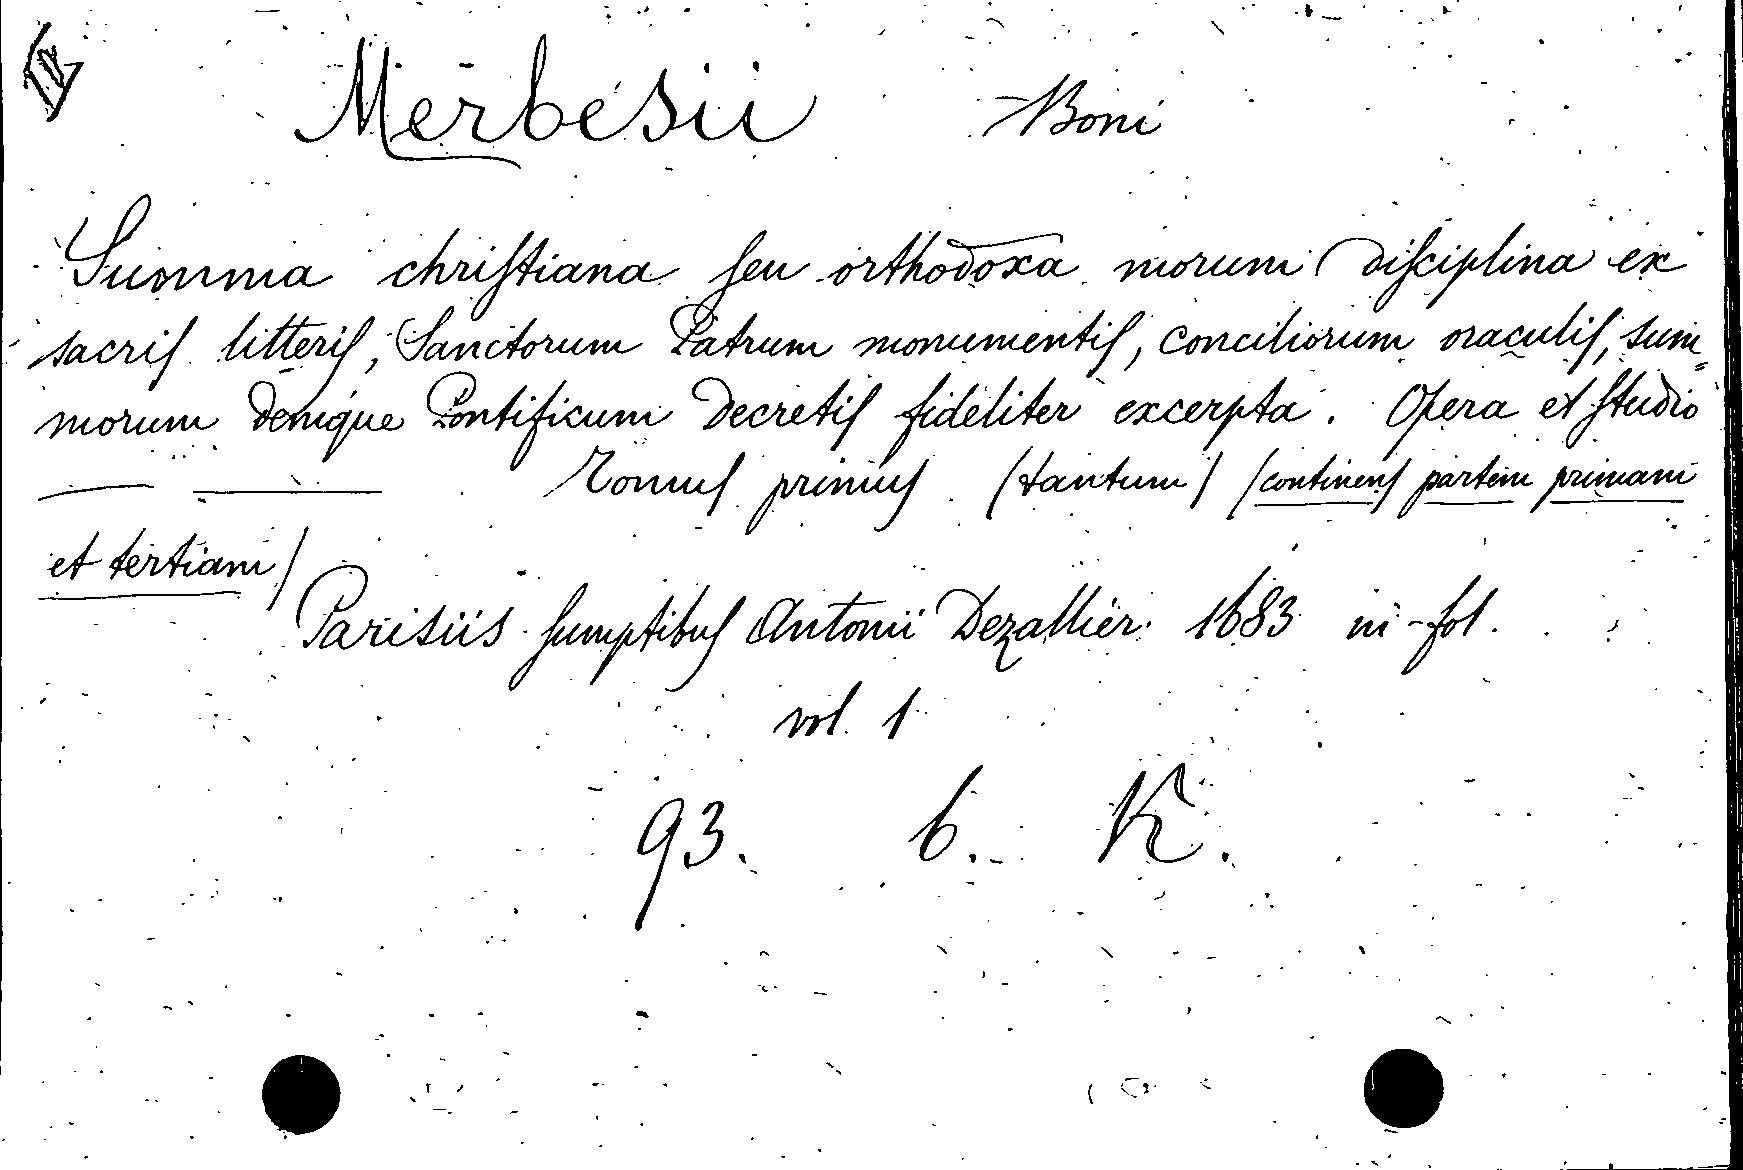 Merbesii Boni
Summa chriſtiana ſeu orthodoxa morum disciplina ex
sacris litteris, Sanctorum Patrum monumentis, conciliorum oraculis, sum=
morum denique Pontificum Decretis fideliter excerpta. Opera et ſtudio
— — Tomus primus (tantum) (continens partem primam
et tertiam)
Parisiis ſumptibus Antonii Dezallier 1683 in-fol.
vol. 1
93. 6. K.